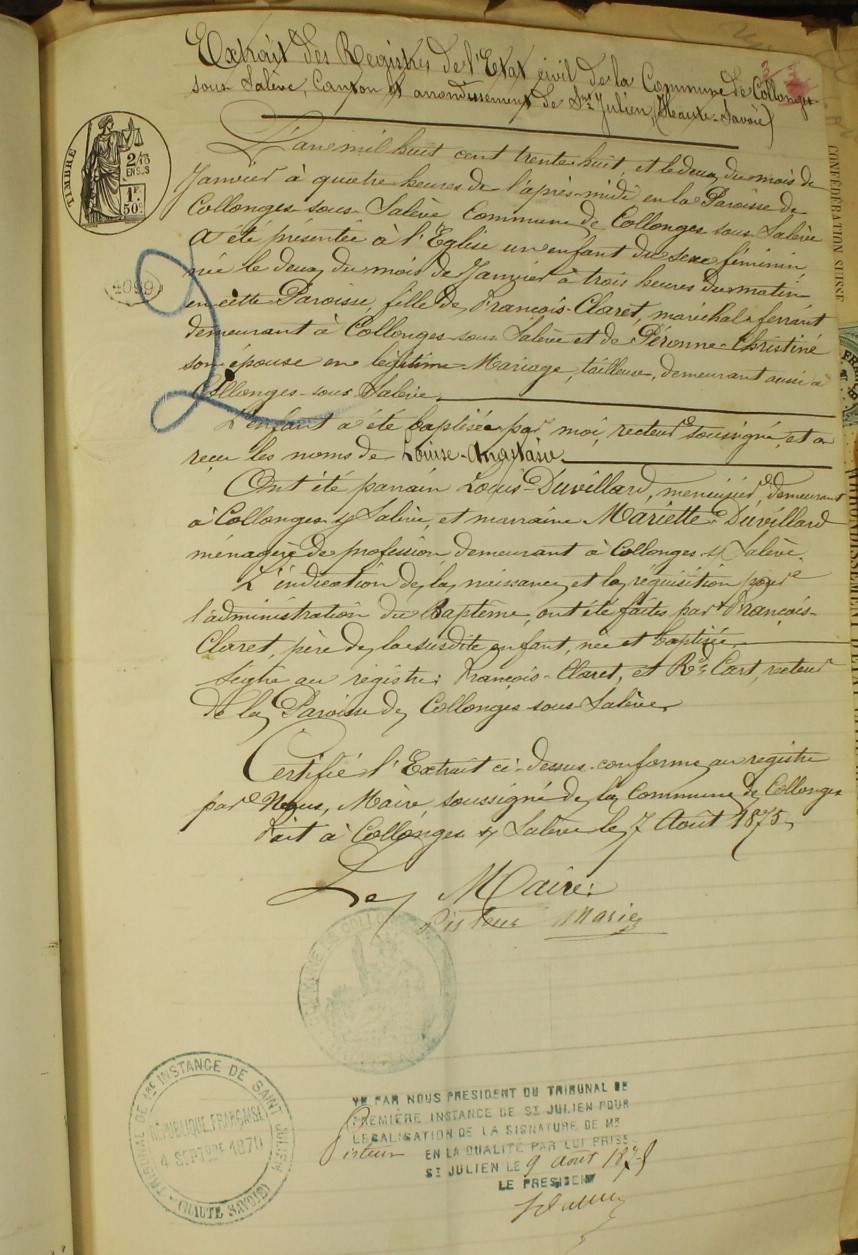 Extrait des Registres de l'Etat civil de la Commune de Collonges
sous Salève, Canton et arrondissement de St Julien, (Haute-Savoie)
TIMBRE
2/10 EN SUS
1F. 50C.
2099
L'an mil huit cent trente huit, et le deux du mois de
Janvier à quatre heures de l'après-midi en la Paroisse de
Collonges sous Salève Commune de Collonges sous Salève
a été présentée à l'Eglise un enfant du sexe féminin,
née le deux du mois de Janvier à trois heures du matin
en cette Paroisse, fille de François-Claret, maréchal-ferrant
demeurant à Collonges sous Salève et de Péronne-Christiné
son épouse en légitime Mariage, tailleuse, demeurant aussi à
Collonges-sous-Salève.
L'enfant a été baptisée par moi, recteur soussigné, et a
reçu les noms de Louise-Anastasie
Ont été parrain Louis-Duvillard, menuisier, demeurant
à Collonges s/ Salève, et marraine Mariette-Duvillard
ménagère de profession demeurant à Collonges s/ Salève.
L'indication de la naissance, et la réquisition pour
l'administration du Baptême, ont été faites par François-
Claret, père de la susdite enfant, née et baptisée
Signé au registre: François-Claret, et Rd Cart, recteur
de la Paroisse de Collonges sous Salève
Certifié l'Extrait ci-dessus conforme au registre
par Nous, Maire soussigné de la Commune de Collonges
Fait à Collonges s/ Salève le 7 Août 1875
Le Maire:
Pisteur Marie
TRIBUNAL DE 1RE INSTANCE DE SAINT JULIEN
RÉPUBLIQUE FRANÇAISE
4 SEPTBRE 1870
(HAUTE SAVOIE)
VU PAR NOUS PRESIDENT DU TRIBUNAL DE
PREMIÈRE INSTANCE DE ST JULIEN POUR
LEGALISATION DE LA SIGNATURE DE MR
Pisteur EN LA QUALITÉ PAR LUI PRISE
ST JULIEN LE 9 août 1875
LE PRESIDENT
CONFÉDÉRATION SUISSE